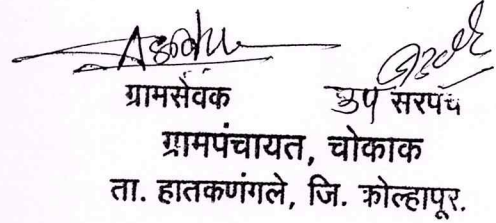 ग्रामसेवक उप सरपंच
ग्रामपंचायत, चोकाक
ता. हातकणंगले, जि. कोल्हापूर.